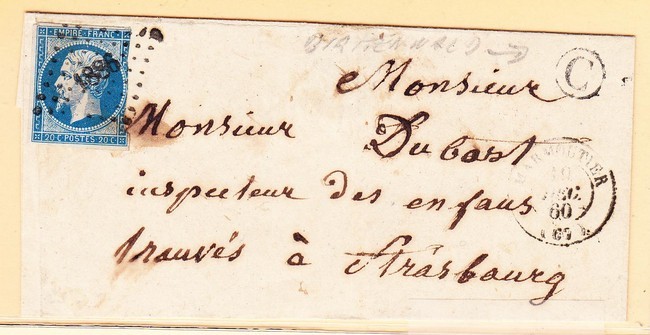 EMPIRE FRANC
1896
20 C POSTES 20 C
C
Monsieur
Monsieur Dubost
inspecteur des enfans
trouvés à Strasbourg
MARMOUTIER
10
DEC.
60
(67)